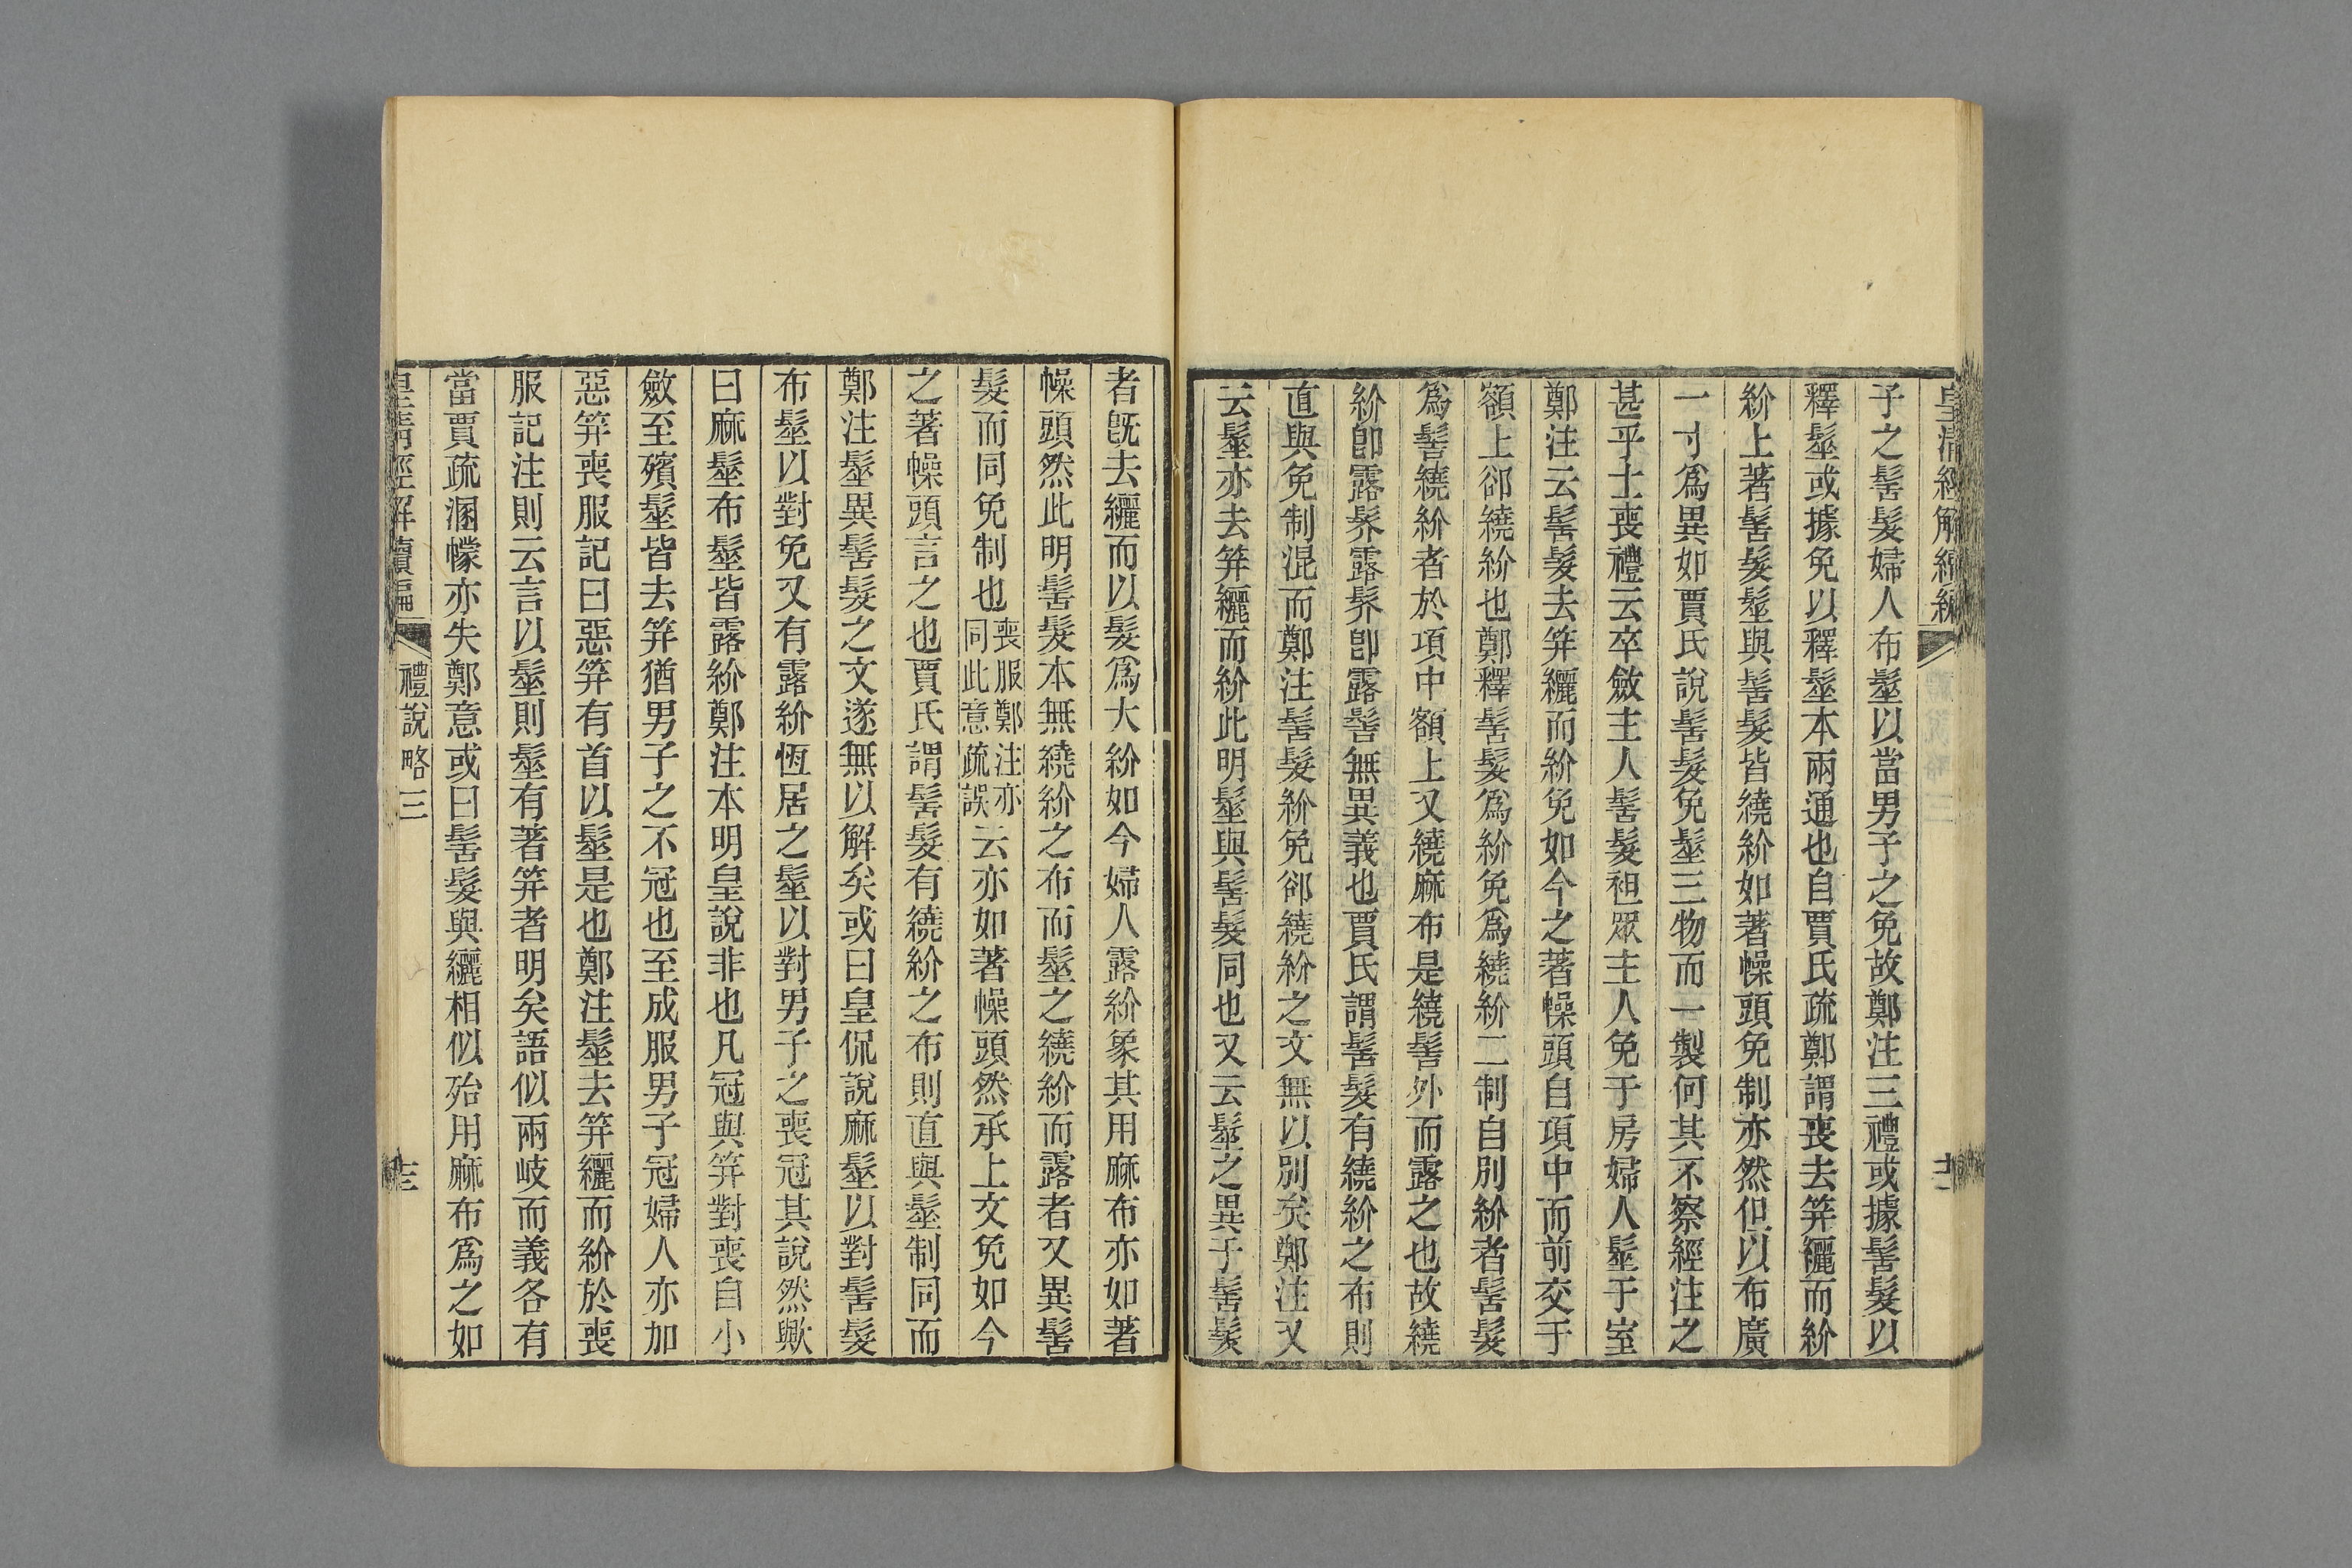 皇清經解續編
子之髺髮婦人布髽以當男子之免故鄭注三禮或據髺髮以
釋髽或據免以釋髽本兩通也自賈氏疏鄭謂喪去笄纚而紒
紒上著髺髮髽與髺髮皆繞紒如著幧頭免制亦然但以布廣
一寸爲異如賈氏說髺髮免髽三物而一製何其不察經注之
甚乎士喪禮云卒斂主人髺髮袒眾主人免于房婦人髽于室
鄭注云髺髮去笄纚而紒免如今之著幧頭自項中而前交于
額上郤繞紒也鄭釋髺髮爲紒免爲繞紒二制自別紒者髺髮
爲髺繞紒者於項中額上又繞麻布是繞髺外而露之也故繞
紒卽露紒露紒卽露髺無異義也賈氏謂髺髮有繞紒之布則
直與免制混而鄭注髺髮紒免郤繞紒之文無以別矣鄭注又
云髽亦去笄纚而紒此明髽與髺髮同也又云髽之異于髺髮
者旣去纚而以髮爲大紒如今婦人露紒象其用麻布亦如著
幧頭然此明髺髮本無繞紒之布而髽之繞紒而露者又異髺
髮而同免制也喪服鄭注亦同此意疏誤云亦如著幧頭然承上文免如今
之著幧頭言之也賈氏謂髺髮有繞紒之布則直與髽制同而
鄭注髽異髺髮之文遂無以解矣或曰皇侃說麻髽以對髺髮
布髽以對免又有露紒恆居之髽以對男子之喪冠其說然歟
曰麻髽布髽皆露紒鄭注本明皇說非也凡冠與笄對喪自小
斂至殯髽皆去笄猶男子之不冠也至成服男子冠婦人亦加
惡笄喪服記曰惡笄有首以髽是也鄭注髽去笄纚而紒於喪
服記注則云言以髽則髽有著笄者明矣語似兩岐而義各有
當賈疏溷幪亦失鄭意或曰髺髮與纚相似殆用麻布爲之如
皇清經解續編 禮說略三 十三